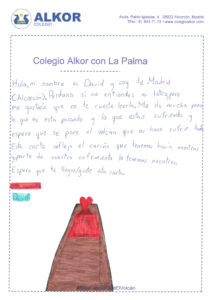 ALKOR
COLEGIO
Avda. Pablo Iglesias, 9. 28922 Alcorcón, Madrid
www.colegioalkor.com
Colegio Alkor con La Palma
Hola, mi nombre es David y soy de Madrid
(Alcorcón). Perdona si no entiendes mi letra, pero
me gustaría que no te cueste leerla. Me da mucha pena
lo que os está pasando y lo que estáis sufriendo y
espero que se pare el volcán que os hace sufrir tanto.
Esta carta refleja el cariño que tenemos hacia vosotros
y parte de vuestro sufrimiento lo tenemos nosotros.
Espero que te haya gustado esta carta.
David